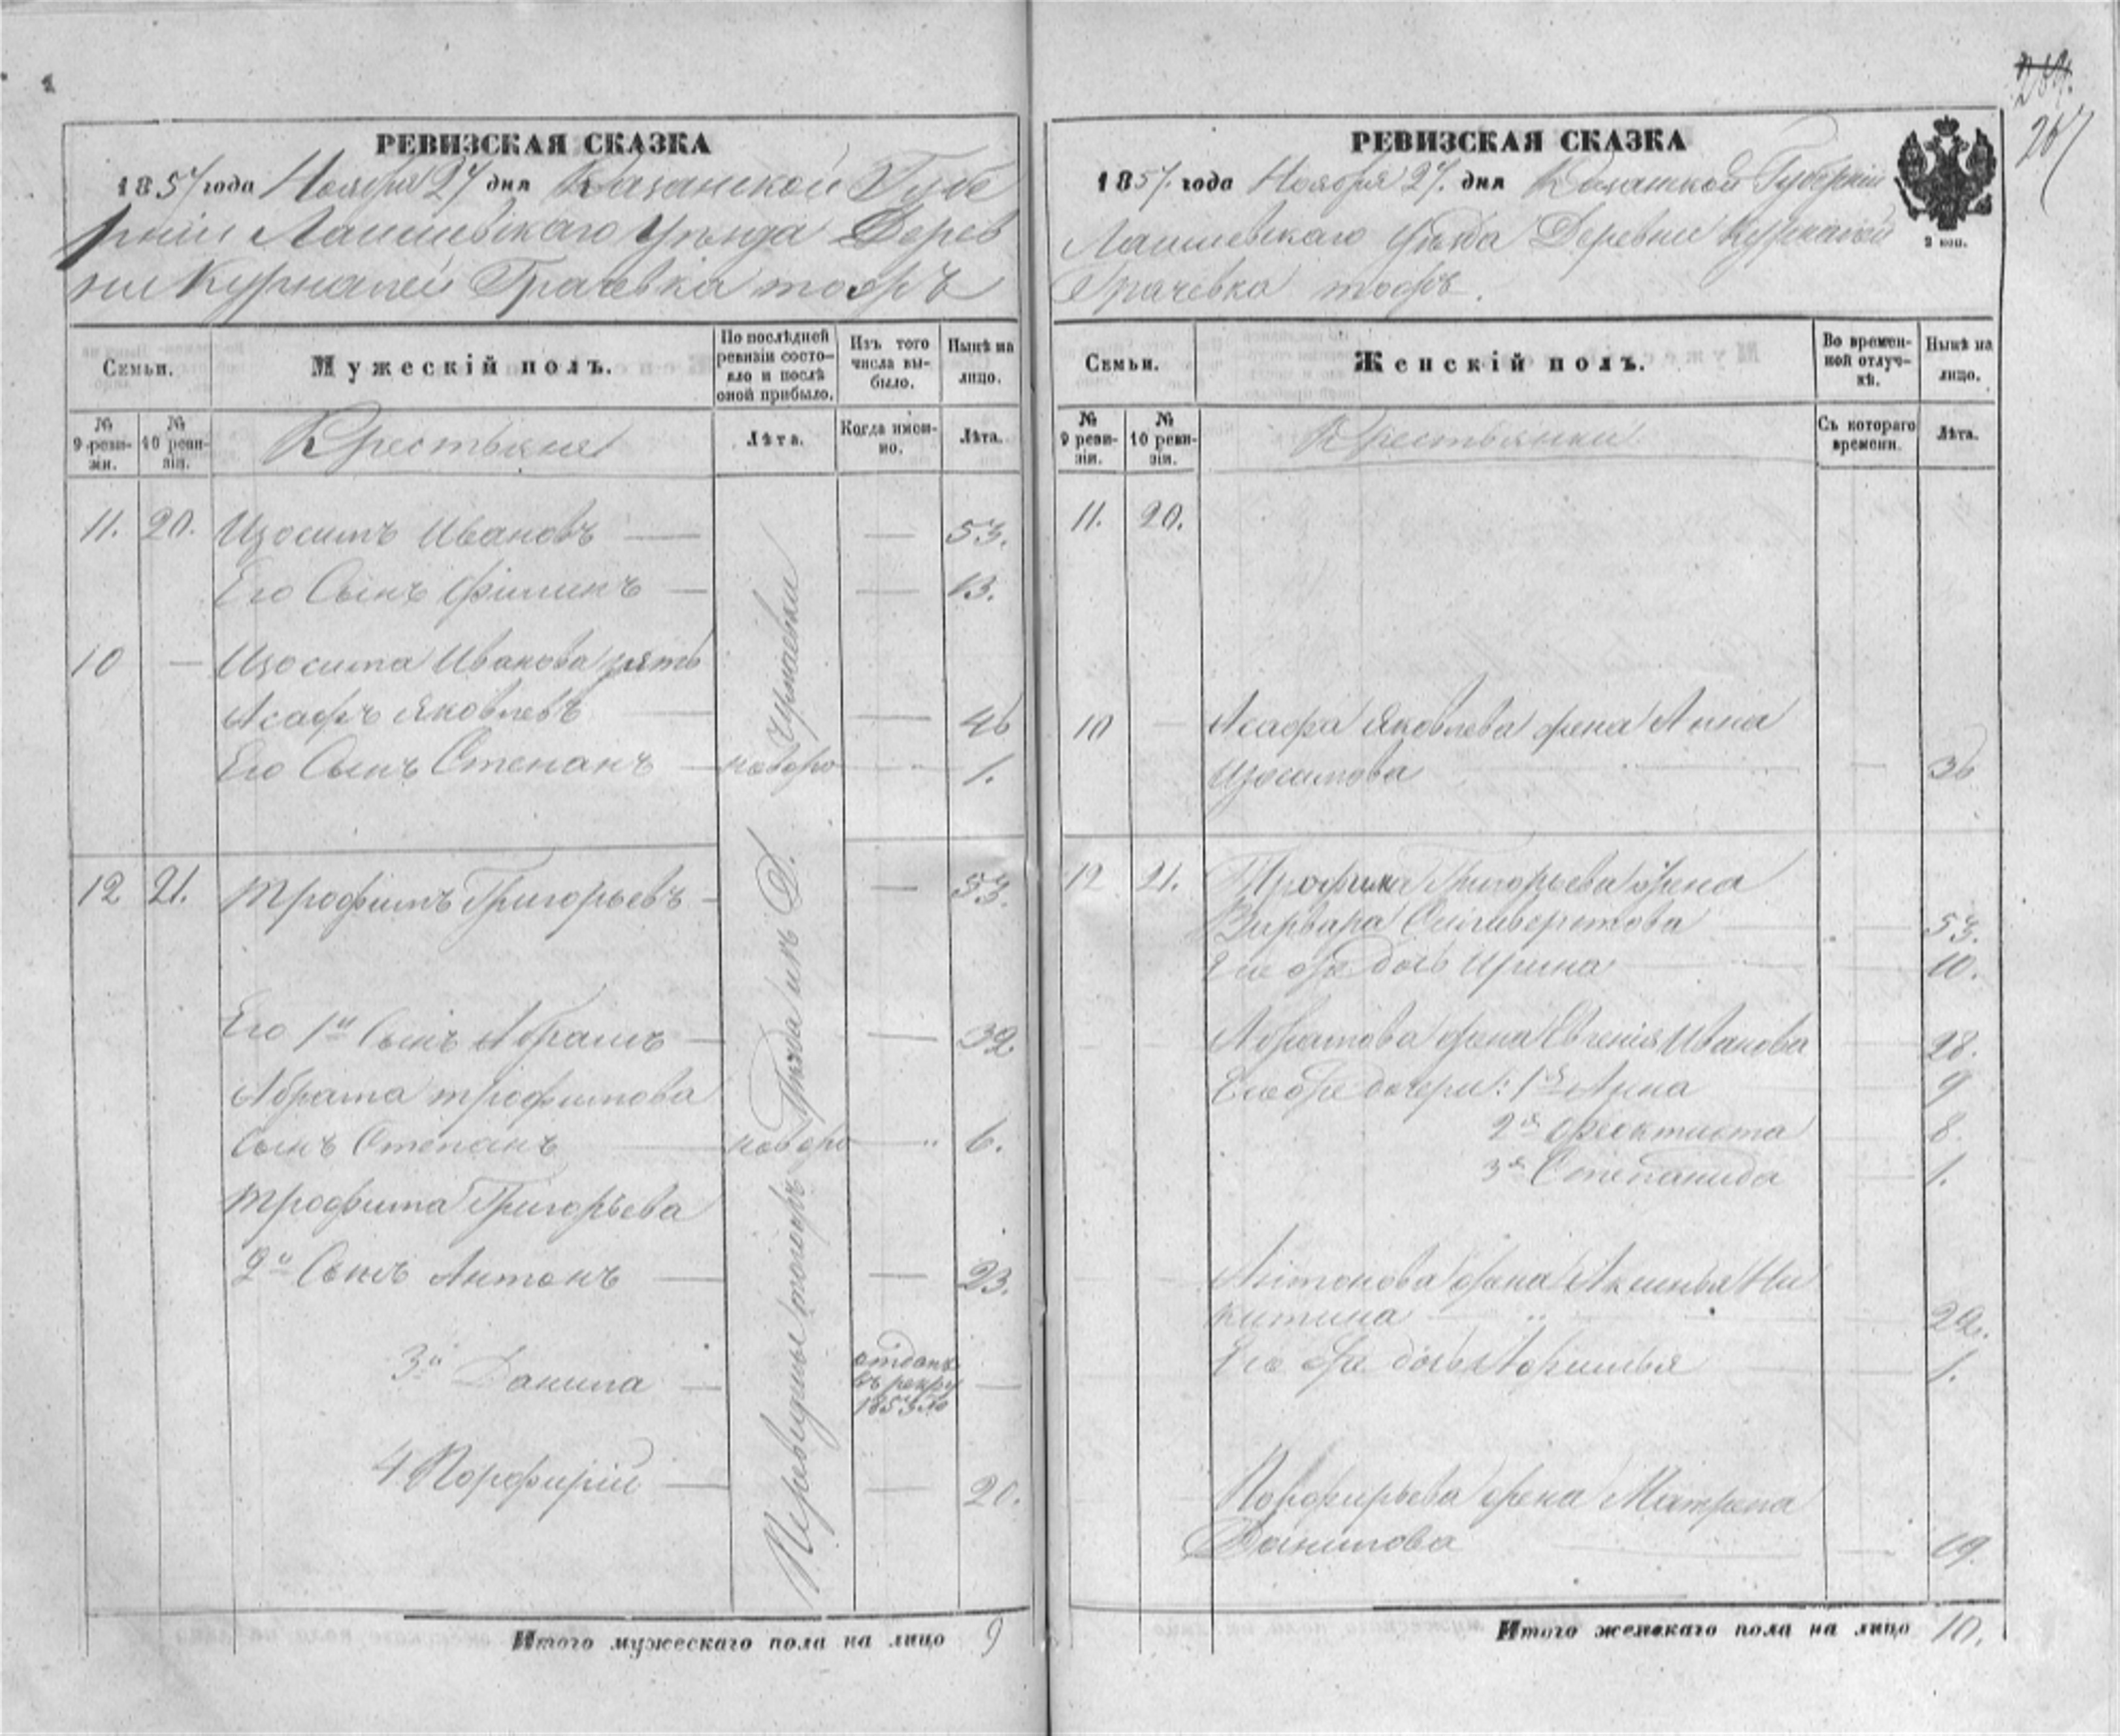 РЕВИЗСКАЯ СКАЗКА
1857 года Ноября 27 дня Казанской Губе
рніи Лаишевскаго Уѣзда Дерев
ни Курналей Грачевка тожъ
Семьи.
Мужескій полъ.
По послѣдней ревизіи состояло и послѣ оной прибыло.
Изъ того числа выбыло.
Нынѣ на лицо.
№ 9 ревизіи.
№ 10 ревизіи.
Крестьяне
Лѣта.
Когда именно.
Лѣта.
11. 20. Изосимъ Ивановъ — — 53.
Его Сынъ Филипъ — — 13.
10 — Изосима Иванова зять
Асафъ Яковлевъ — — 46
Его Сынъ Степанъ — новоро — 1.
12 21. Трофимъ Григорьевъ — — 53.
Его 1й Сынъ Абрамъ — — 32
Абрама Трофимова
Сынъ Степанъ — новоро — 6.
Трофима Григорьева
2й Сынъ Антонъ — — 23.
3й Данила — отданъ въ рекру 1853 —
4 Порфирій — — 20.
Уѣзда изъ Д.
Итого мужескаго пола на лицо 9
РЕВИЗСКАЯ СКАЗКА
1857. года Ноября 27. дня Казанской Губерніи
Лаишевскаго Уѣзда Деревни Курналей
Грачевка тожъ.
2 коп.
287
Семьи.
Женскій полъ.
Во временной отлучкѣ.
Нынѣ на лицо.
№ 9 ревизіи.
№ 10 ревизіи.
Крестьянки
Съ котораго времени.
Лѣта.
11. 20.
10 — Асафа Яковлева жена Анна
Изосимова — 36
12 21. Трофима Григорьева жена
Варвара Силиверстова — 53.
Его же дочь Ирина — 10.
Абрамова жена Евгенія Иванова — 28.
Его же дочери: 1я Анна — 9
2я Феоктиста — 8.
3я Степанида — 1.
Антонова жена Аксинья Ни
китина — 22.
Его же дочь — 1.
Порфирьева жена Матрена
Данилова — 19.
Итого женскаго пола на лицо 10.